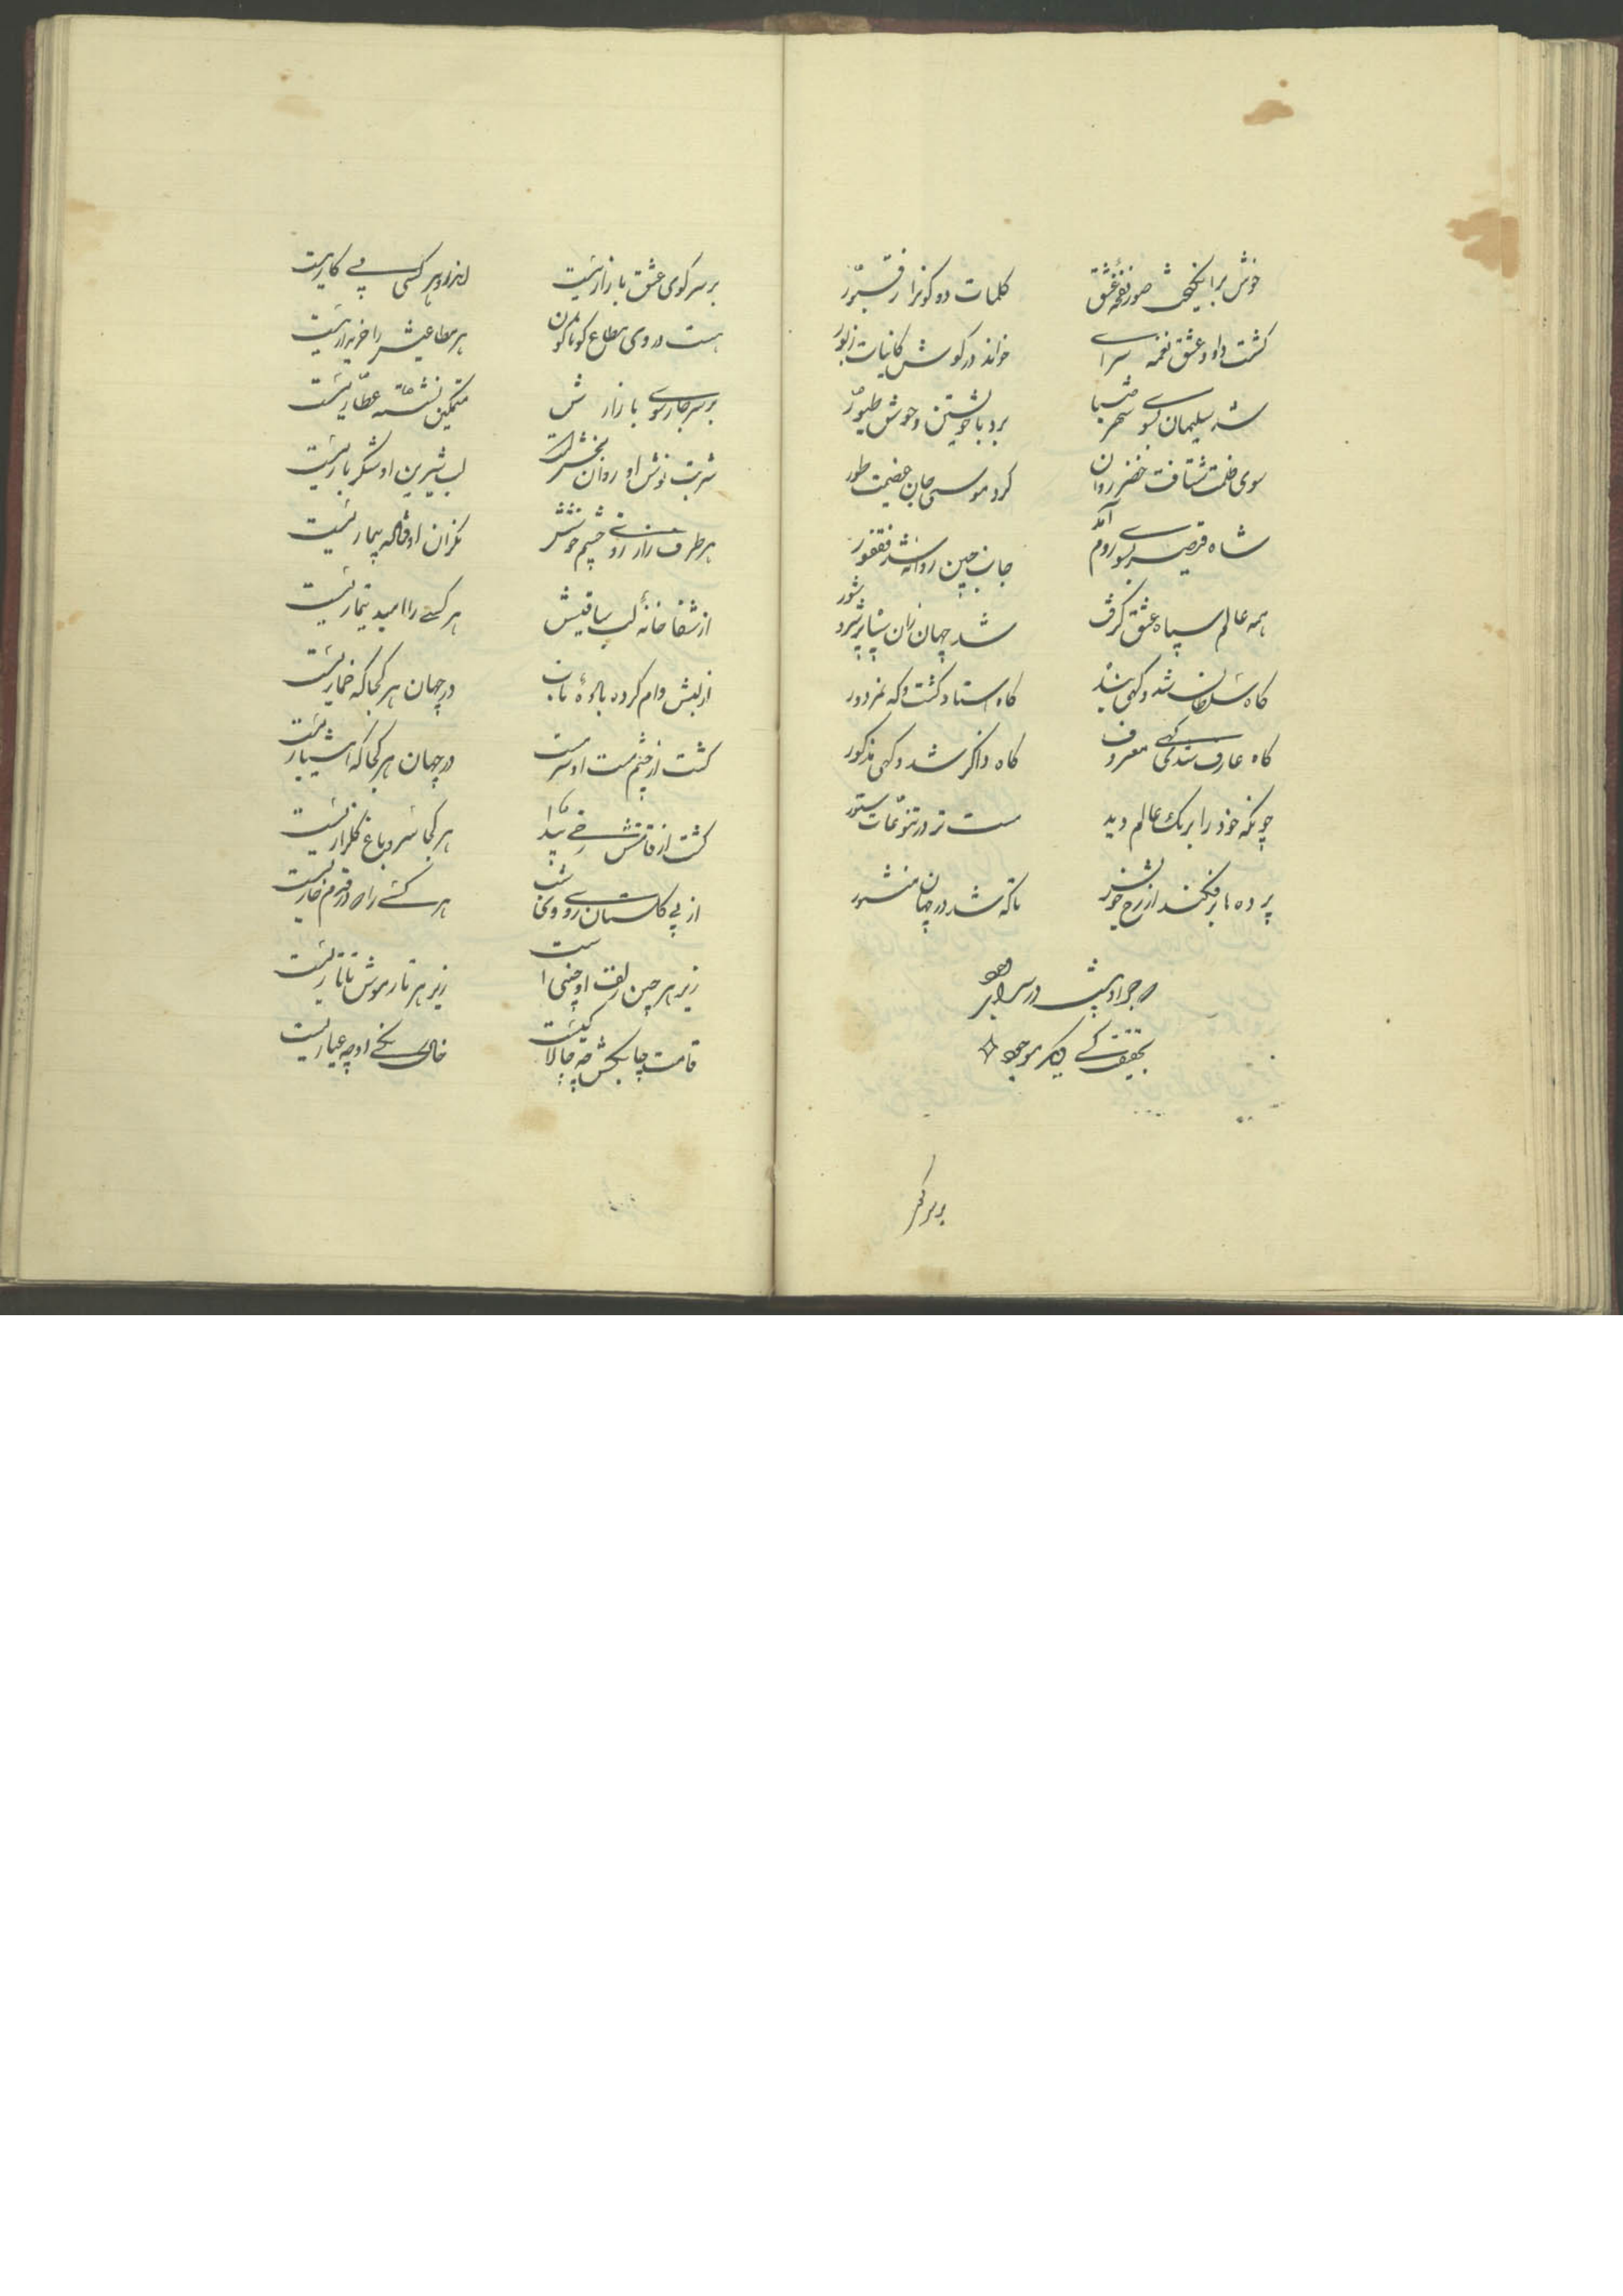 خوش برانگیخت صور نفخهٔ عشق    کلمات دو کونرا ز قبور
کشت داود عشق نغمه سرای    خواند در کوش کاینات زبور
شد سلیمان بسوی شهر سبا    برد با خویشتن وحوش و طیور
سوی ظلمت شتافت خضر روان    کرد موسی جان عزیمت طور
شاه قیصر بسوی روم آمد    جانب چین روانه شد فغفور
همه عالم سپاه عشق کرفت    شد جهان زان سپاه پر شر و شور
کاه سلطان شد و کهی بنده    کاه استاد کشت و که مزدور
کاه عارف شد کهی معروف    کاه ذاکر شد و کهی مذکور
چونکه خود را برنک عالم دید    مستتر در تنوعات ستور
پرده ها برفکند از رخ خویش    تا که شد در جهان منشور
که جز او نیست در سرای وجود
بحقیقت کسی دیکر موجود
بر سر کو
بر سر کوی عشق بازاریست    اندرو هر کسی پی کاریست
هست در وی مطاع کوناکون    هر مطاعیش را خریداریست
بر سر چارسوی بازارش    متمکن نشسته عطاریست
شربت نوش او روان بخش است    لب شیرین او شکر باریست
هر طرف ز ارزوی چشم خوشش    نکران اوفتاده بیماریست
از شفا خانهٔ لب ساقیش    هر کسی را امید تیماریست
از لبش وام کرده بادهٔ ناب    در جهان هر کجا که خماریست
کشت از چشم مست او سرمست    در جهان هر کجا که هشیاریست
کشت از قامتش رخی پیدا    هر کجا سرو باغ کلزاریست
از پی کلستان روی    هر کسی را در قدم خاریست
زیر هر چین زلف او چینی است    زیر هر تار موش تاتاریست
قامت چابکش چه چالاکیست    خال شنکی او چه عیاریست